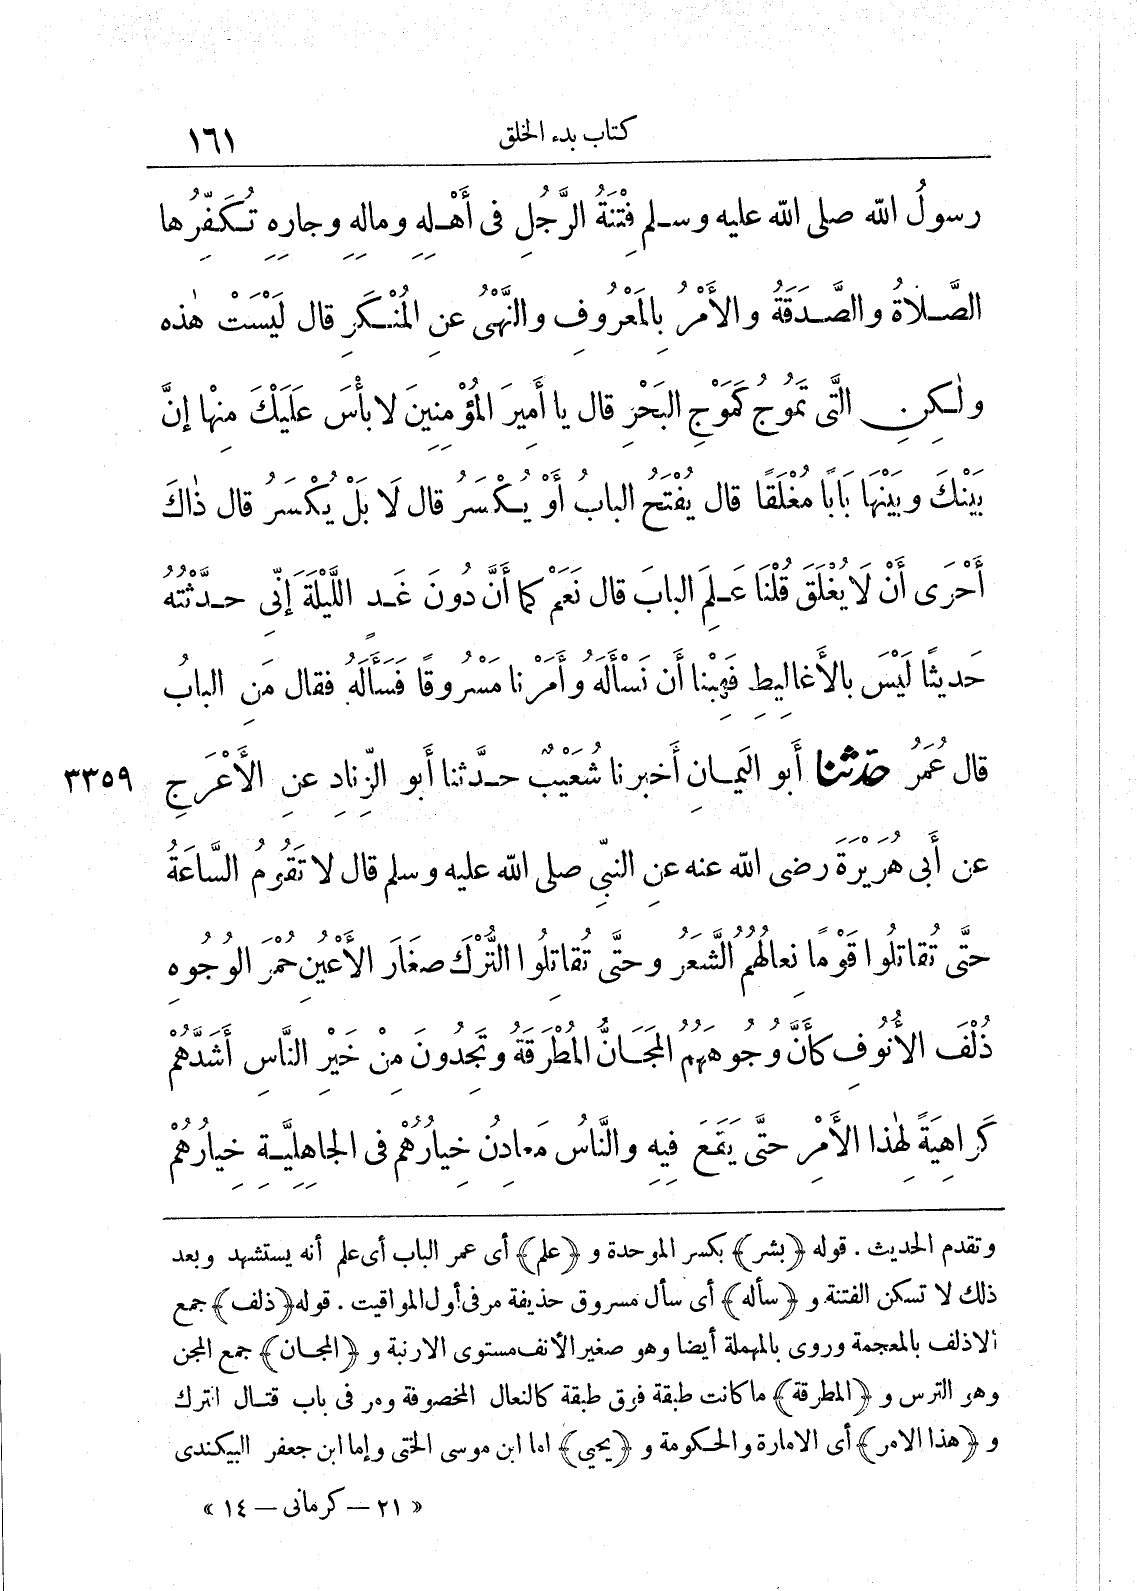 كتاب بدء الخلق ١٦١
رسولُ الله صلى الله عليه وسلم فِتْنَةُ الرَّجُلِ فى أَهْلِهِ ومالِهِ وجارِهِ تُكَفِّرُها
الصَّلاةُ والصَّدَقَةُ والأَمْرُ بِالمَعْرُوفِ والنَّهْىُ عنِ المُنْكَرِ قال لَيْسَتْ هٰذه
ولٰكِنِ الَّتى تَمُوجُ كَمَوْجِ البَحْرِ قال يا أَمِيرَ المُؤْمِنِينَ لا بأْسَ عَلَيْكَ مِنْها إنَّ
بَيْنَكَ وبَيْنَها بَابًا مُغْلَقًا قال يُفْتَحُ البابُ أَوْ يُكْسَرُ قال لَا بَلْ يُكْسَرُ قال ذٰاكَ
أَحْرَى أَنْ لا يُغْلَقَ قُلْنَا عَلِمَ البابَ قال نَعَمْ كما أَنَّ دُونَ غَدٍ اللَّيْلَةَ إنِّى حدَّثْتُه
حَديثًا لَيْسَ بالأَغاليِطِ فَهِبْنا أَن نَسْأَلَهُ وأَمَرْنا مَسْرُوقًا فَسَأَلَهُ فقال مَنِ البابُ
قال عُمَرُ حدّثنا أَبو اليَمانِ أَخبرنا شُعَيْبٌ حدَّثنا أَبو الزِّنادِ عنِ الأَعْرَجِ ٣٣٥٩
عن أَبى هُرَيْرَةَ رضى الله عنه عنِ النبىِّ صلى الله عليه وسلم قال لا تَقُومُ السَّاعَةُ
حتَّى تُقاتلُوا قَوْمًا نِعالُهُمُ الشَّعَرُ وحتَّى تُقاتِلُوا التُّرْكَ صغَارَ الأَعْيُنِ حُمْرَ الوُجُوهِ
ذُلْفَ الأُنُوفِ كأَنَّ وُجُوهَهُمُ المَجَانُّ المُطْرَقَةُ وتَجِدُونَ مِنْ خَيْرِ النَّاسِ أَشَدَّهُمْ
كَراهِيَةً لِهٰذا الأَمْرِ حتَّى يَقَعَ فِيهِ والنَّاسُ مَعادِنُ خِيارُهُمْ فى الجاهِلِيَّةِ خِيارُهُمْ
وتقدم الحديث . قوله ﴿بشر﴾ بكسر الموحدة و ﴿علم﴾ أى عمر الباب أى علم أنه يستشهد وبعد
ذلك لا تسكن الفتنة و ﴿سأله﴾ أى سأل مسروق حذيفة مر فى أول المواقيت . قوله ﴿ذلف﴾ جمع
الاذلف بالمعجمة وروى بالمهملة أيضا وهو صغير الأنف مستوى الارنبة و ﴿المجان﴾ جمع المجن
وهو الترس و ﴿المطرقة﴾ ما كانت طبقة فوق طبقة كالنعال المخصوفة ومر فى باب قتال الترك
و ﴿هذا الامر﴾ أى الامارة والحكومة و ﴿يحيى﴾ اما ابن موسى الختى وإما ابن جعفر البيكندى
« ٢١ – كرمانى – ١٤ »